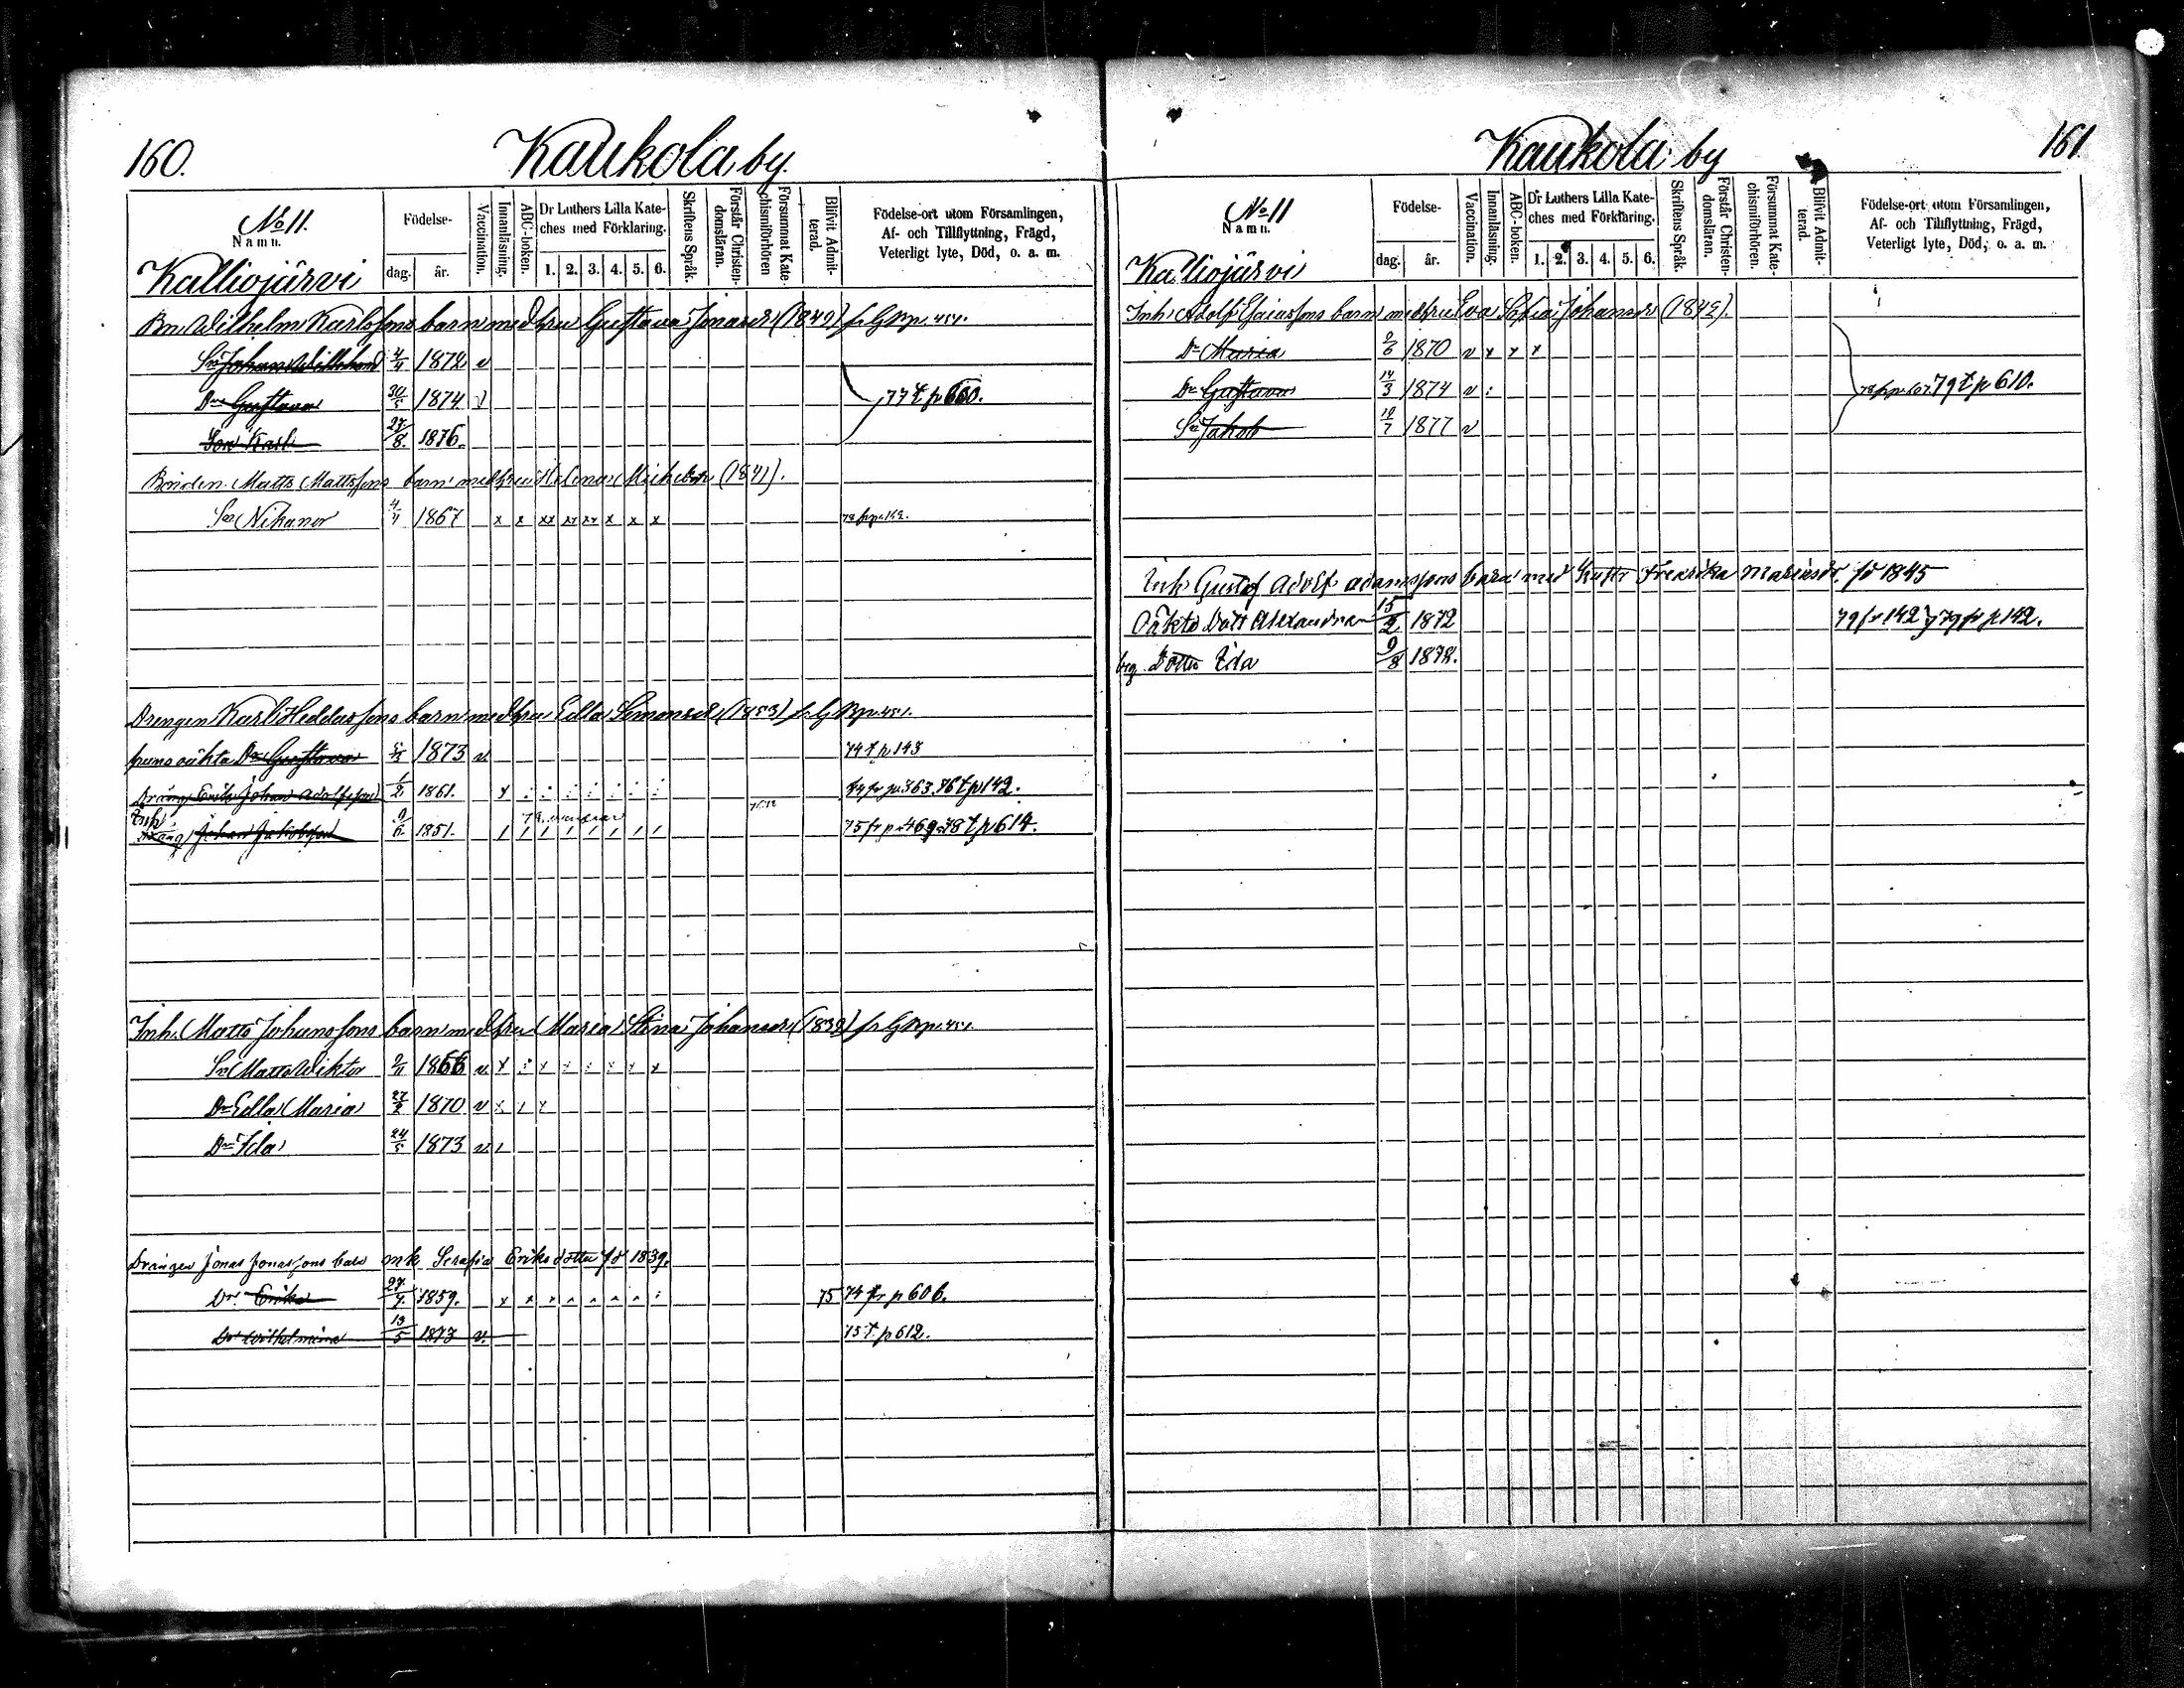 160.
Kaukola by.
No 11.
Namn.
Födelse-
dag.
år.
Vaccination.
Innanläsning.
ABC-boken.
Dr Luthers Lilla Kate-
ches med Förklaring.
1. 2. 3. 4. 5. 6.
Skriftens Språk.
Förstår Christen-
domsläran.
Försummat Kate-
chismiförhören
Blifvit Admit-
terad.
Födelse-ort utom Församlingen,
Af- och Tillflyttning, Frägd,
Veterligt lyte, Död, o. a. m.
Kalliojärvi
Bn Wilhelm Karlssons barn med hru Gustava Jonasdr (1849) fr GBp. 454.
Sn Johan Wilhelm 4/4 1872 v
Dr Gustava 24/5 1874 v 77 t. p 660.
Son Karl 27/8 1876.
Bonden Matts Mattssons barn med hru Helena Michelsdr (1841).
Sn Nikanor 4/4 1867 x x xx xx xx x x x 78 fr p. 142.
Drengen Karl Heddassons barn med hru Edla Simonsdr (1853) fr GBp. 451.
hans oäkta Dr Gustava 1873 v 74 t p 143
Dräng Erik Johan Adolfsson 1/2 1861. 74 fr p. 363. 76 t p 142.
Inh
Dräng Johan Jakobsson 9/6 1851. 75 fr p. 469. 78 t p 614.
Inh. Matts Johanssons barn med hru Maria Stina Johansdr (1838) fr GBp. 451.
Sn Matts Wiktor 2/11 1866 v
Dr Edla Maria 27/2 1870 v
Dr Ida 24/5 1873 v
Drängen Jonas Jonassons barn m h Serafia Eriksdotter fd 1839.
Dr. Erika 27/7. 1859. 75 74 fr p 606.
Dr Wilhelmina 13/5 1873 v. 75 t. p 612.
161
Kaukola by
No 11
Namn.
Födelse-
dag.
år.
Vaccination.
Innanläsning.
ABC-boken.
Dr Luthers Lilla Kate-
ches med Förklaring.
1. 2. 3. 4. 5. 6.
Skriftens Språk.
Förstår Christen-
domsläran.
Försummat Kate-
chismiförhören.
Blifvit Admit-
terad.
Födelse-ort utom Församlingen,
Af- och Tillflyttning, Frägd,
Veterligt lyte, Död, o. a. m.
Kalliojärvi
Inh. Adolf Esaiassons barn med hru Eva Sofia Johansdr (1842).
Dr Maria 2/6 1870 v x x x
Dr Gustava 14/3 1874 v : 79 t p 610.
Sn Jakob 19/7 1877 v
Inh Gustaf Adolf Adamssons barn med hustr Fredrika Mariasdr. fd 1845
Oäkta Dott Alexandra 15/2 1872 79 fr 142 79 fr p 142.
Dotter Ida 9/8 1878.